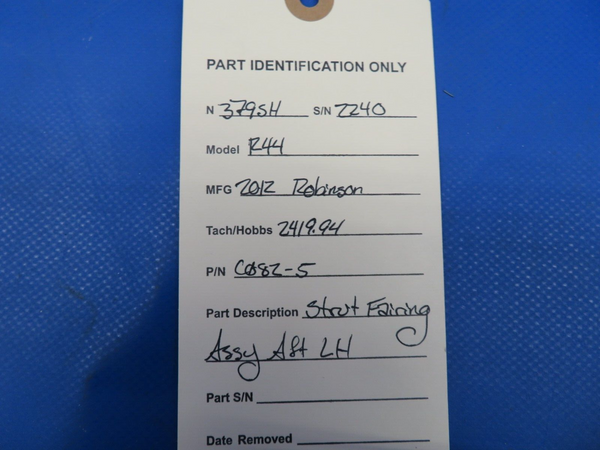 PART IDENTIFICATION ONLY
N 379SH S/N 2240
Model R44
MFG 2012 Robinson
Tach/Hobbs 2419.94
P/N C082-5
Part Description Strut Fairing
Assy Aft LH
Part S/N
Date Removed